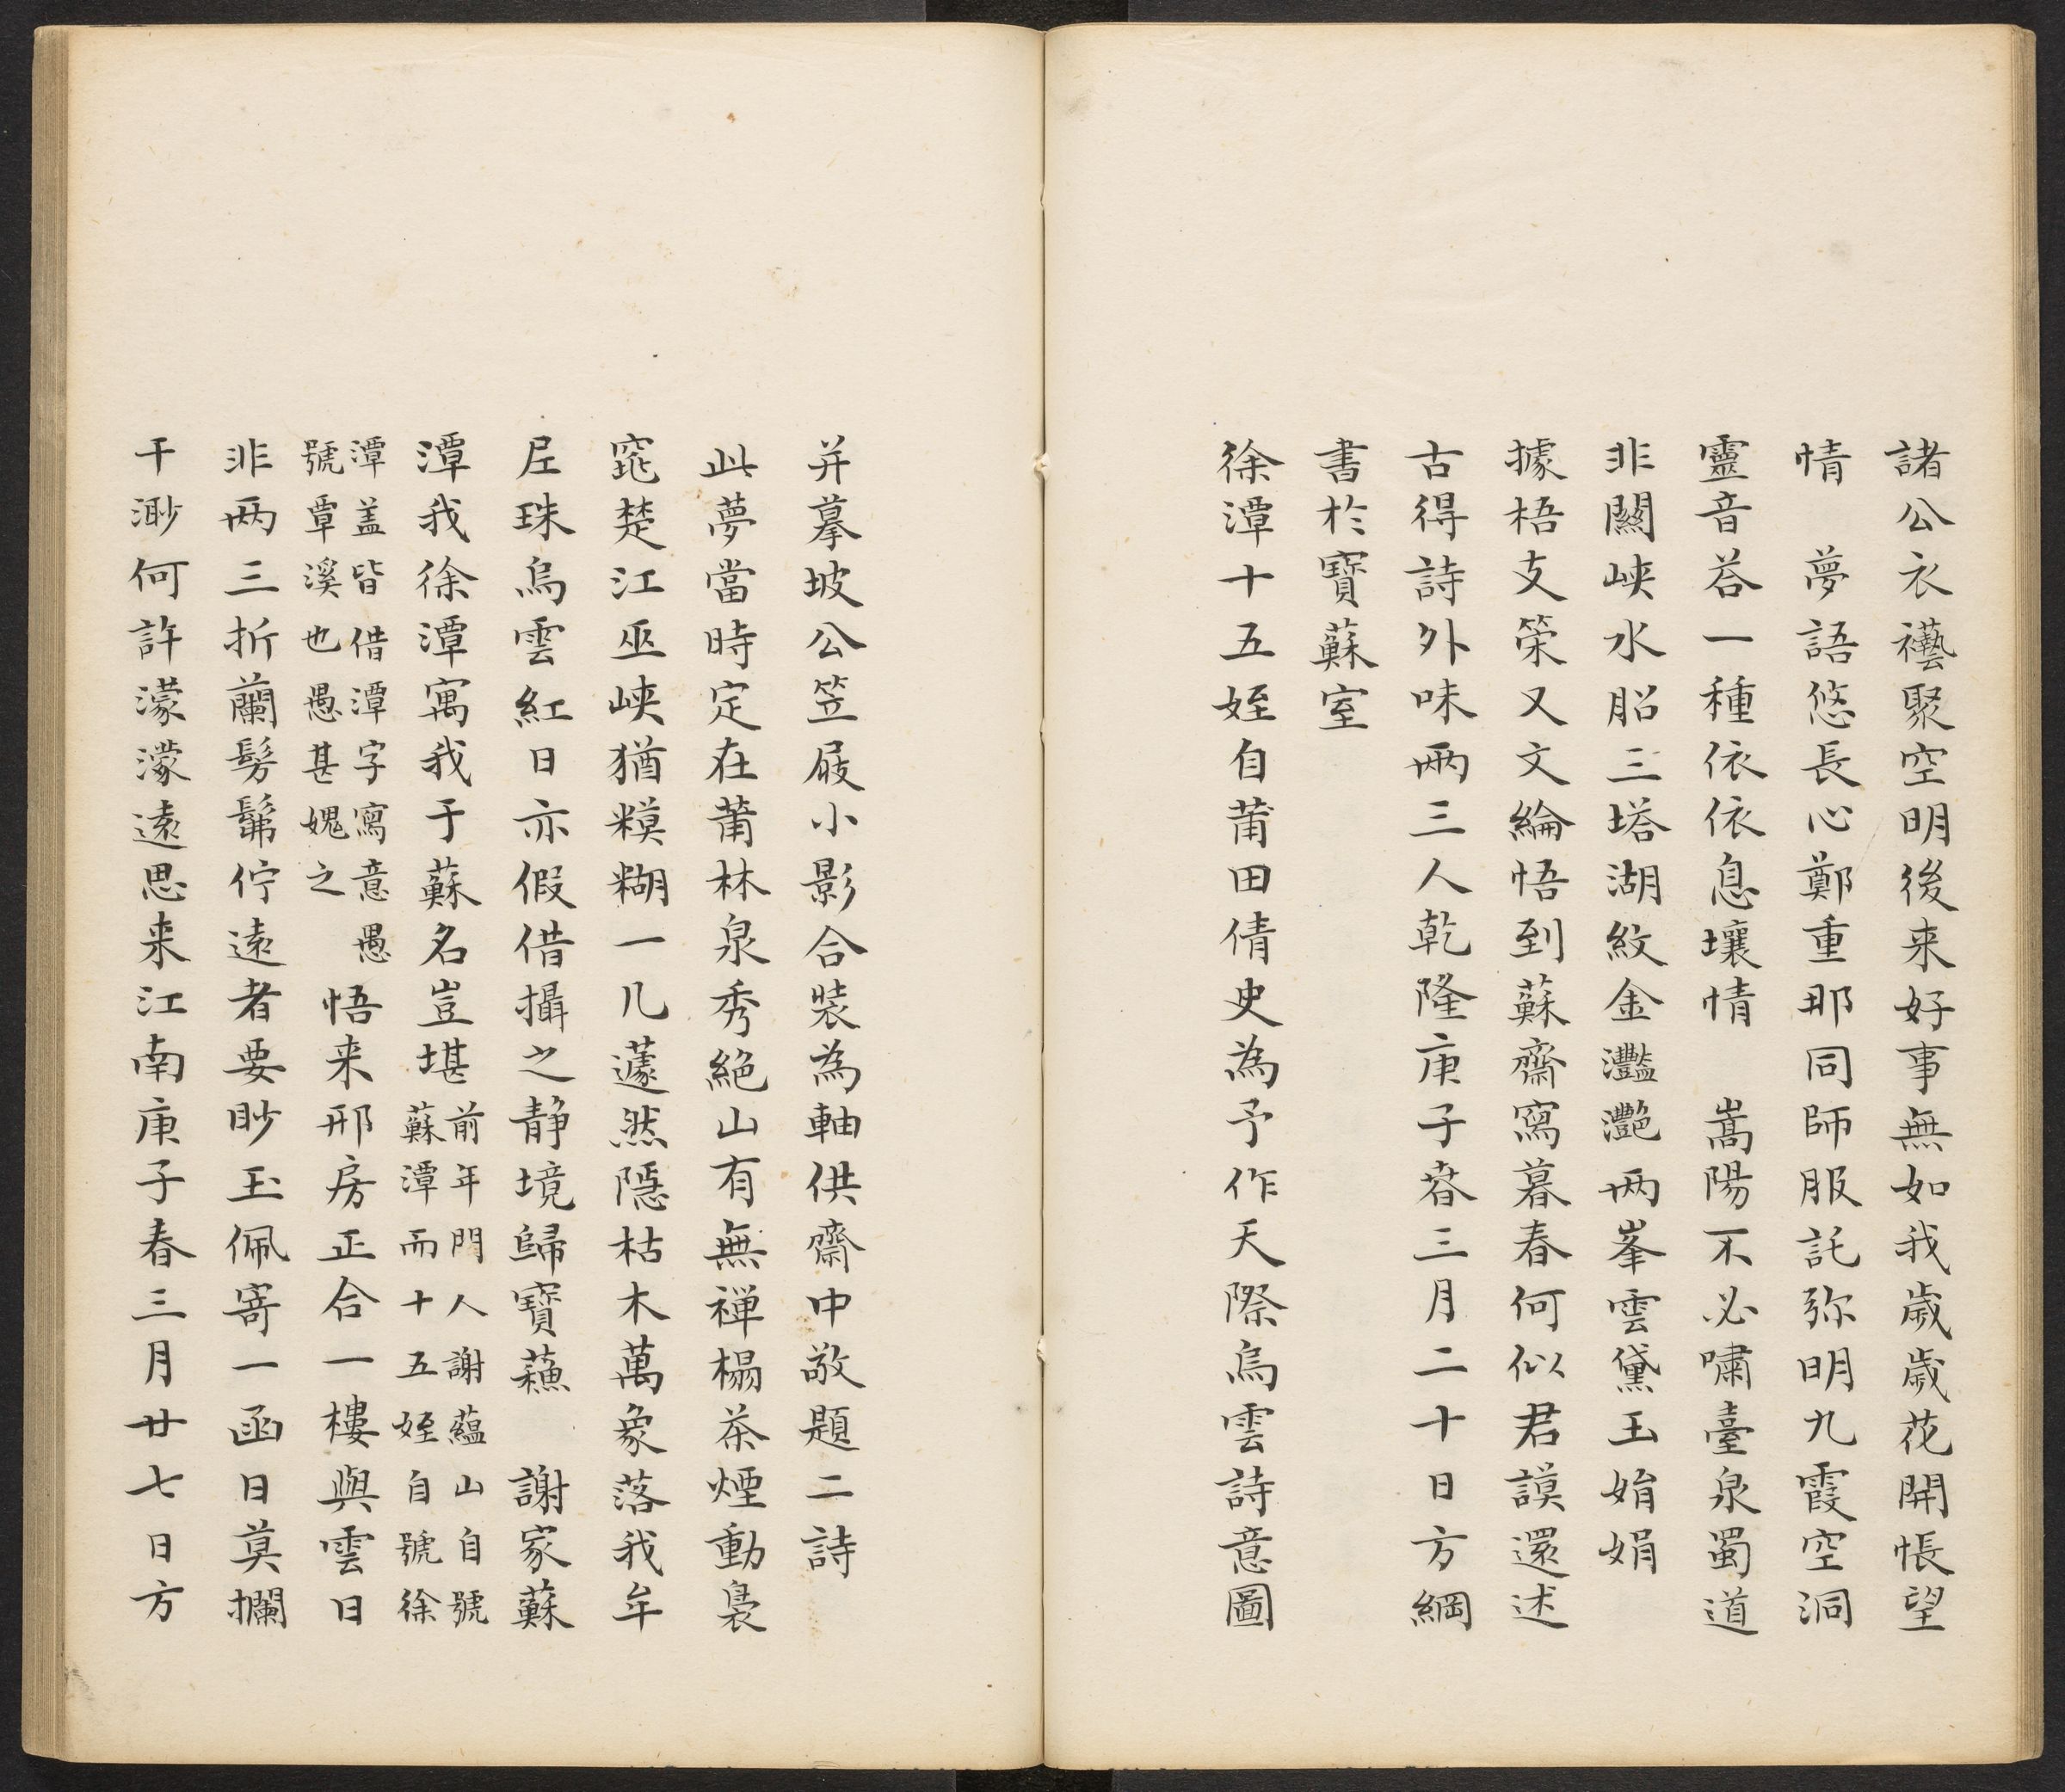 諸公衣襼聚空明後来好事無如我歲歲花開悵望
情　夢語悠長心鄭重那同師服託弥明九霞空洞
靈音荅一種依依息壤情　嵩陽不必嘯臺泉蜀道
非關峽水船三塔湖紋金灩灩兩峯雲黛玉娟娟
據梧支策又文綸悟到蘇齋寫暮春何似君謨還述
古得詩外味兩三人乾隆庚子春三月二十日方綱
書於寶蘇室
徐潭十五姪自莆田倩史為予作天際烏雲詩意圖
并摹坡公笠屐小影合裝為軸供齋中敬題二詩
此夢當時定在莆林泉秀絕山有無禪榻茶煙動裊
窕楚江巫峽猶糢糊一几蘧然隱枯木萬象落我牟
尼珠烏雲紅日亦假借攝之静境歸寶蘓　謝家蘇
潭我徐潭寓我于蘇名豈堪
前年門人謝蘊山自號
蘇潭而十五姪自號徐
潭盖皆借潭字寫意愚
號覃溪也愚甚媿之
悟来邢房正合一樓與雲日
非兩三折蘭髣髴佇遠者要眇玉佩寄一函日莫攔
干渺何許濛濛遠思来江南庚子春三月廿七日方